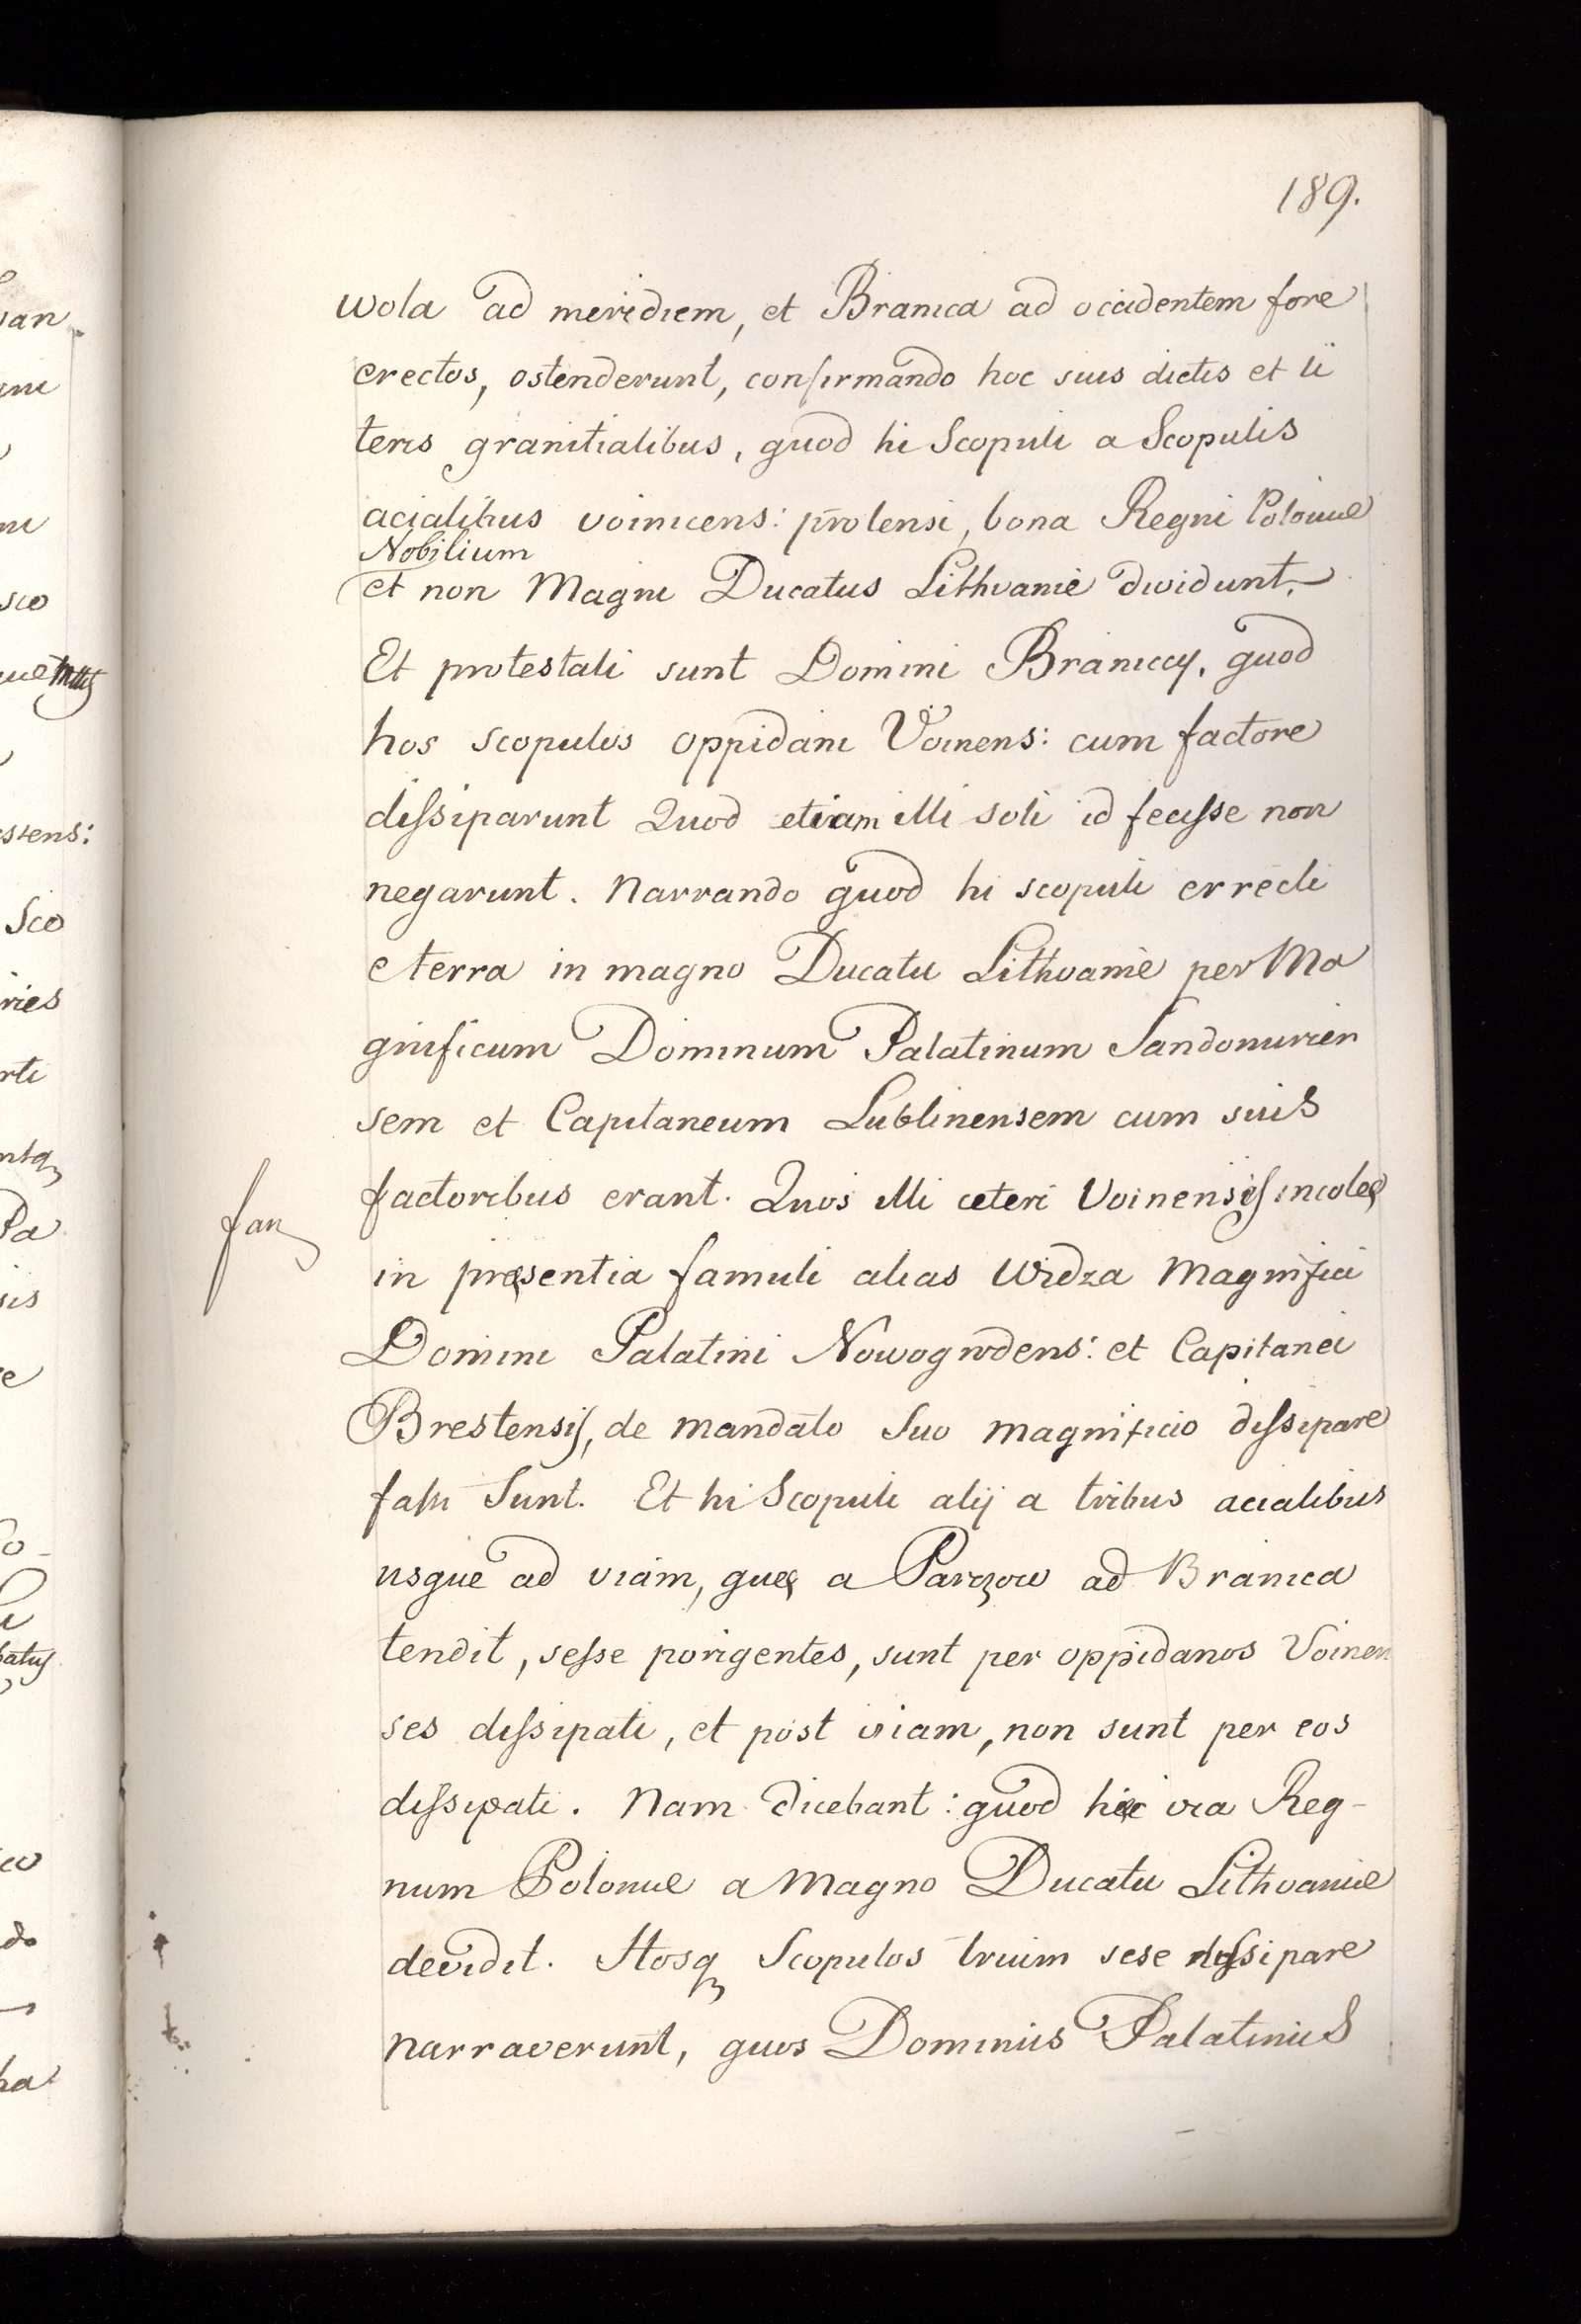 189.
wola ad meridiem, et Branica ad occidentem fore
erectos, ostenderunt, confirmando hoc suis dictis et li
teris granitialibus, quod hi Scopuli a Scopulis
acialibus voinicens: protensi, bona Regni Poloniae
Nobilium
et non Magni Ducatus Lithvaniè dividunt.
Et protestati sunt Domini Braniccy, quod
hos scopulos oppidani Voinens: cum factore
dissiparunt Quod etiam illi soli id fecisse non
negarunt. Narrando quod hi scopuli errecti
e terra in magno Ducatu Lithvaniè per Ma
gnificum Dominum Palatinum Sandomirien
sem et Capitaneum Lublinensem cum suis
factoribus erant. Quos illi ceteri Voinensis incolę
fan
in pręsentia famuli alias Widza Magnifici
Domini Palatini Nowogrodens: et Capitanei
Brestensis, de mandato Suo magnificio dissipare
fassi Sunt. Et hi Scopuli alij a tribus acialibus
usque ad viam, quę a Parczow ad Branica
tendit, sesse porigentes, sunt per oppidanos Voinen
ses dissipati, et post viam, non sunt per eos
dissipati. Nam dicebant: quod hęc via Reg-
num Poloniae a Magno Ducatu Lithvaniae
devidit. Hosq Scopulos trium sese dissipare
narraverunt, quos Dominus Palatinus
ian
sco
stens:
Sco
ries
rti
ntq
Pa
sis
batus